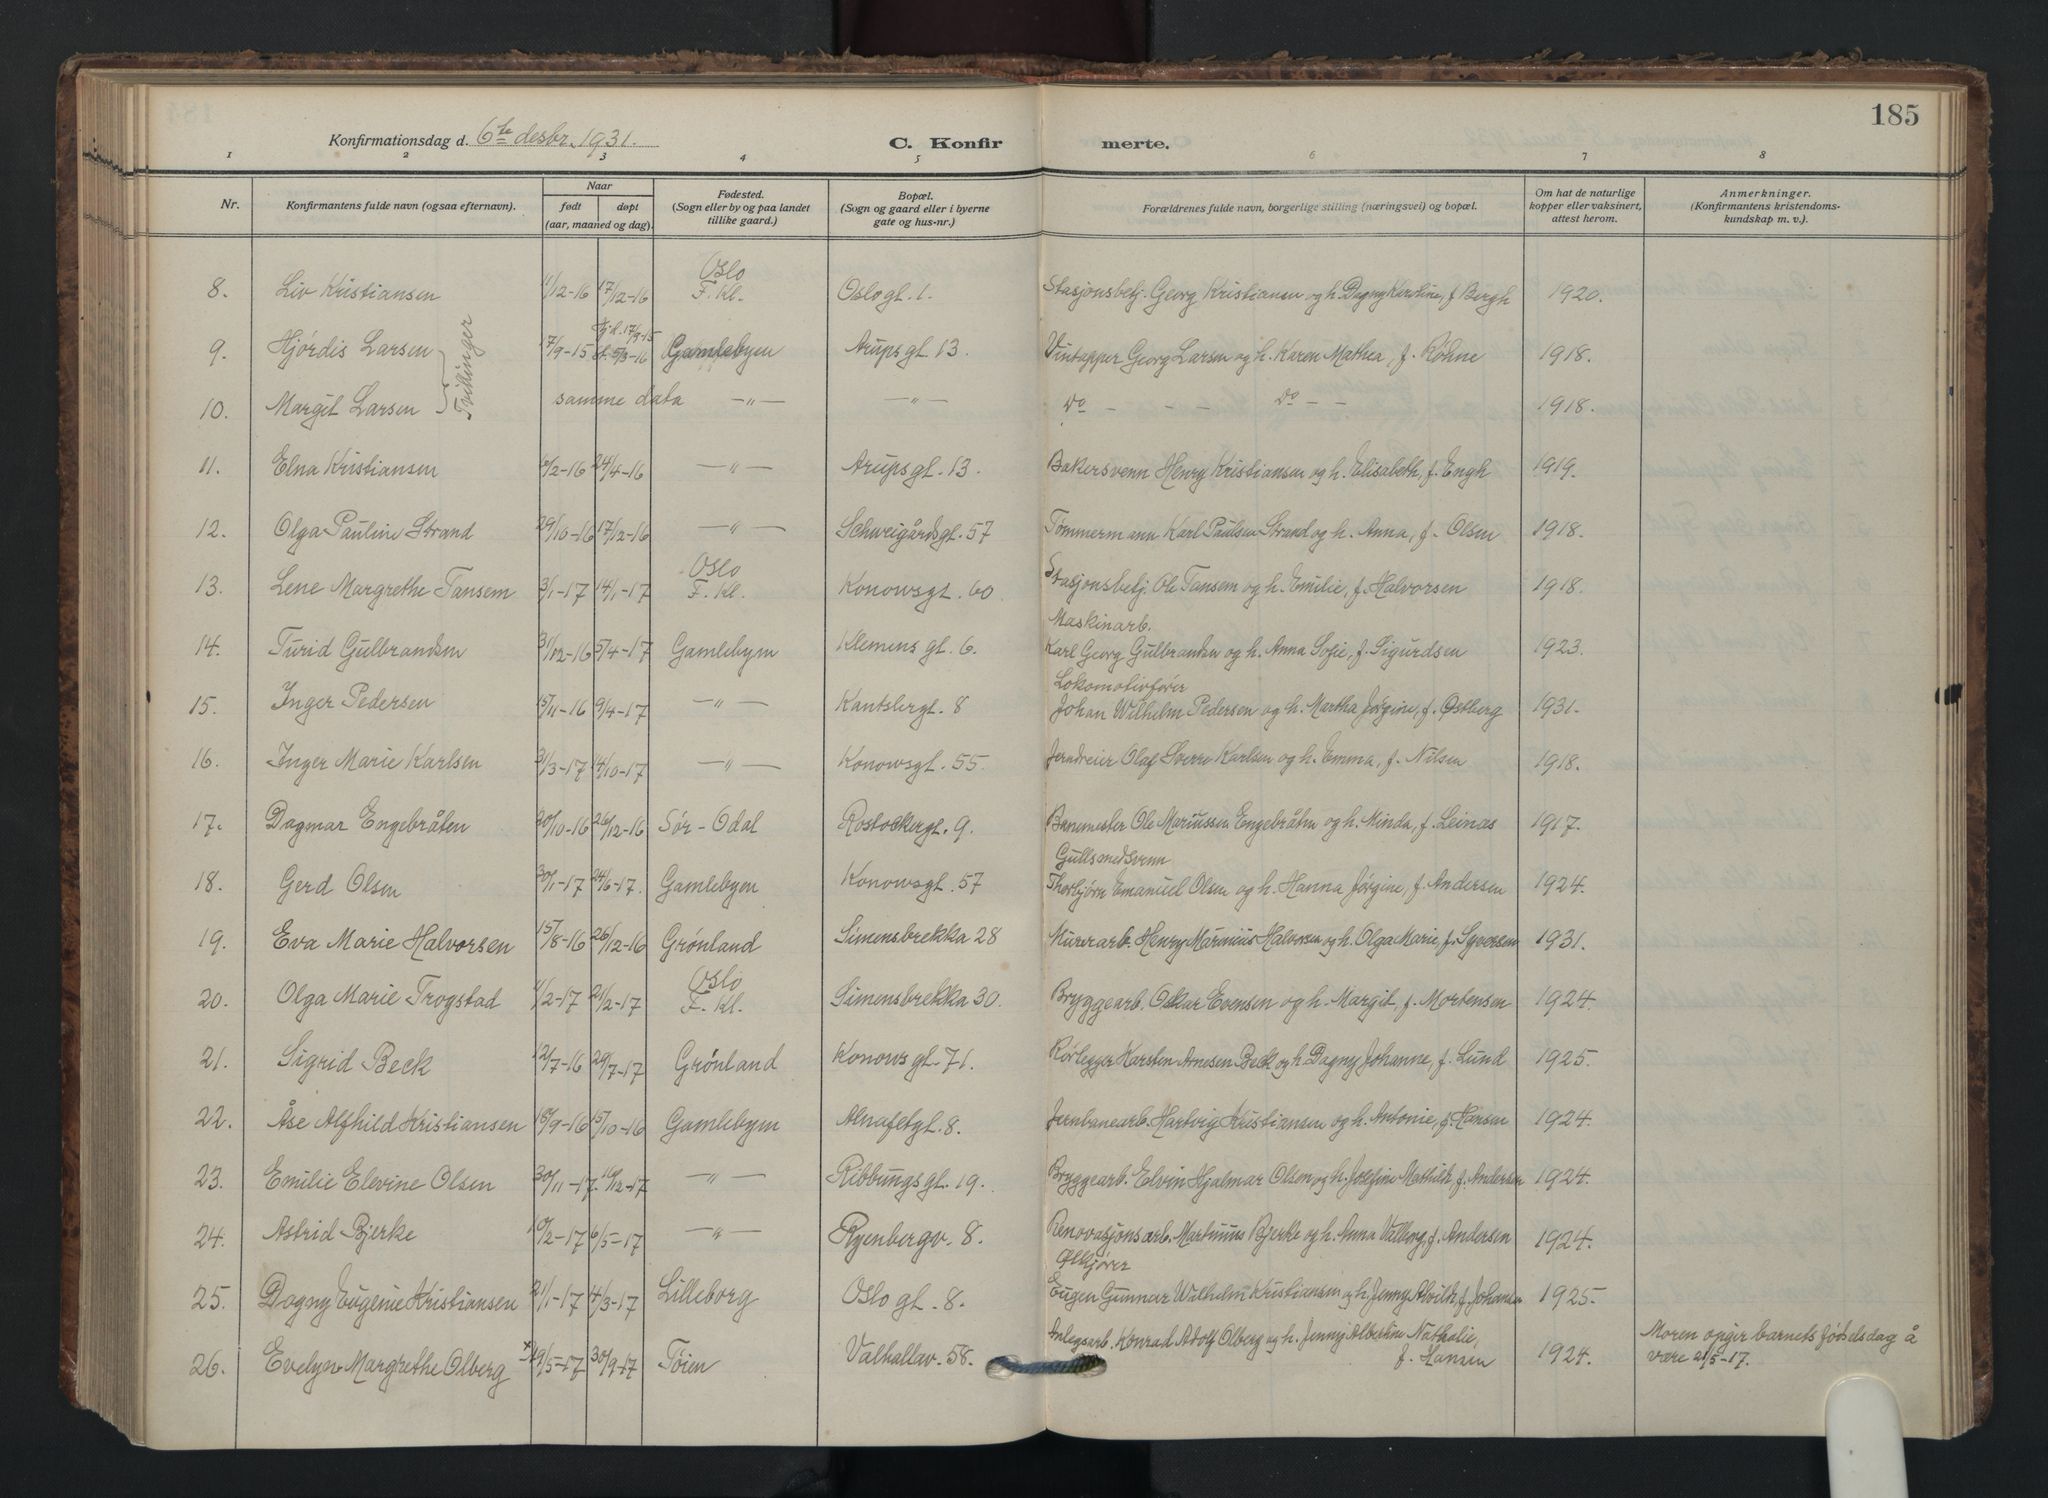 185
Konfirmationsdag d. 6te desbr. 1931.
C. Konfir merte.
1 2 3 4 5 6 7 8
Nr.
Konfirmantens fulde navn (ogsaa efternavn).
Naar
født
døpt
(aar, maaned og dag).
Fødested.
(Sogn eller by og paa landet
tillike gaard.)
Bopæl.
(Sogn og gaard eller i byerne
gate og hus-nr.)
Forældrenes fulde navn, borgerlige stilling (næringsvei) og bopæl.
Om hat de naturlige
kopper eller vaksinert,
attest herom.
Anmerkninger.
(Konfirmantens kristendoms-
kundskap m. v.).
Oslo
8. Liv Kristiansen 11/12-16 17/12-16 F. Kl. Oslo gt. 1. Stasjonsbetj. Georg Kristiansen og h. Dagny Karoline, f. Bergh 1920.
9. Hjørdis Larsen 17/9-15 Gamlebyen Arupsgt 13. Vintapper Georg Larsen og h. Karen Mathea, f. Røhne 1918.
Tvillinger
10. Margit Larsen samme data —"— —"— Do - - - Do - - 1918.
11. Elna Kristiansen 24/4-16 —"— Arupsgt. 13. Bakersvenn Henry Kristiansen og h. Elisabeth, f. Engh 1919.
12. Olga Pauline Strand 29/10-16 17/12-16 —"— Schweigårdsgt. 57 Tømmermann Karl Paulsen Strand og h. Anna, f. Olsen 1918.
Oslo
13. Lene Margrethe Tansem 3/1-17 14/1-17 F. Kl. Konowsgt. 60. Stasjonsbetj. Ole Tansem og h. Emilie, f. Halvorsen 1918.
Maskinarb.
14. Turid Gulbrandsen 31/12-16 5/4-17 Gamlebyen Klemens gt. 6. Karl Georg Gulbrandsen og h. Anna Sofie, f. Sigurdsen 1923.
Lokomotivfører
15. Inger Pedersen 15/11-16 9/4-17 —"— Kantslergt. 8 Johan Wilhelm Pedersen og h. Martha Jørgine, f. Østberg 1931.
16. Inger Marie Karlsen 31/3-17 14/10-17 —"— Konowsgt. 55. Jerndreier Olaf Sverre Karlsen og h. Emma, f. Nilsen 1918.
17. Dagmar Engebråten 30/10-16 26/12-16 Sør-Odal Rostockergt. 9. Banemester Ole Mariussen Engebråten og h. Minda, f. Leinas 1917.
Gullsmedsvenn
18. Gerd Olsen 30/1-17 24/6-17. Gamlebyen Konowsgt. 57 Thorbjørn Emanuel Olsen og h. Hanna Jørgine, f. Andersen 1924.
19. Eva Marie Halvorsen 15/8-16 26/12-16 Grønland Simensbrekka 28 Murerarb. Henry Marinius Halvorsen og h. Olga Marie, f. Syversen 1931.
Oslo
20. Olga Marie Trogstad 11/2-17 21/2-17 F. Kl. Simensbrekka 30. Bryggearb. Oskar Evensen og h. Margit, f. Mortensen 1924.
21. Sigrid Beck 12/7-16 29/7-17 Grønland Konows gt. 71. Rørlegger Karsten Arnesen Beck og h. Dagny Johanne, f. Lund 1925.
22. Åse Alfhild Kristiansen 18/9-16 15/10-16 Gamlebyen Alnafetgt. 8. Jernbanearb. Hartvig Kristiansen og h. Antonie, f. Hansen 1924.
23. Emilie Elevine Olsen 30/11-17. 16/12-17 —"— Ribbungsgt. 19. Bryggearb. Elvin Hjalmar Olsen og h. Josefine Mathilde, f. Andersen 1924.
24. Astrid Bjerke 10/2-17 6/5-17 —"— Ryenbergv. 8. Renovasjonsarb. Martinius Bjerke og h. Anna Valborg, f. Andersen 1924.
Ølkjører
25. Dagny Eugenie Kristiansen 21/1-17 4/3-17 Lilleborg Oslo gt. 8. Eugen Gunnar Wilhelm Kristiansen og h. Jenny Alvilde, f. Johansen 1925.
26. Evelyn Margrethe Olberg x 29/5-17 30/9-17 Tøien Valhallav. 58. Anlegsarb. Konrad Adolf Olberg og h. Jenny Albertine Nathalie,
f. Hansen 1924.
Moren opgir barnets fødselsdag å
være 21/5-17.